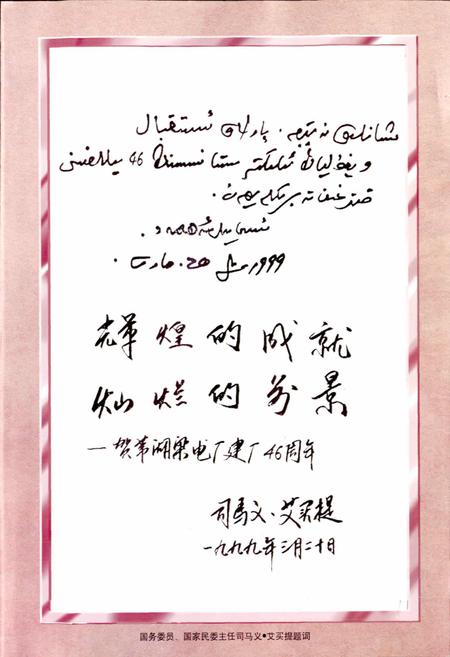 شانلىق نەتىجە، پارلاق ئىستىقبال
46 يىللىقىنى
قىزغىن تەبرىكلەيمەن.
ئىسمايىل ئەھمەد.
1999-يىل 20-مارت.
辉煌的成就
灿烂的前景
—贺苇湖梁电厂建厂46周年
司马义·艾买提
一九九九年三月二十日
国务委员、国家民委主任司马义•艾买提题词